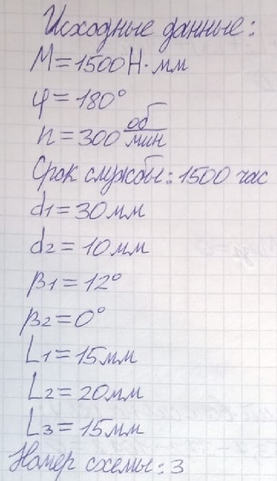 Исходные данные:
M=1500 Н·мм
φ=180°
n=300 об/мин
Срок службы: 1500 час
d1=30мм
d2=10мм
β1=12°
β2=0°
L1=15мм
L2=20мм
L3=15мм
Номер схемы: 3